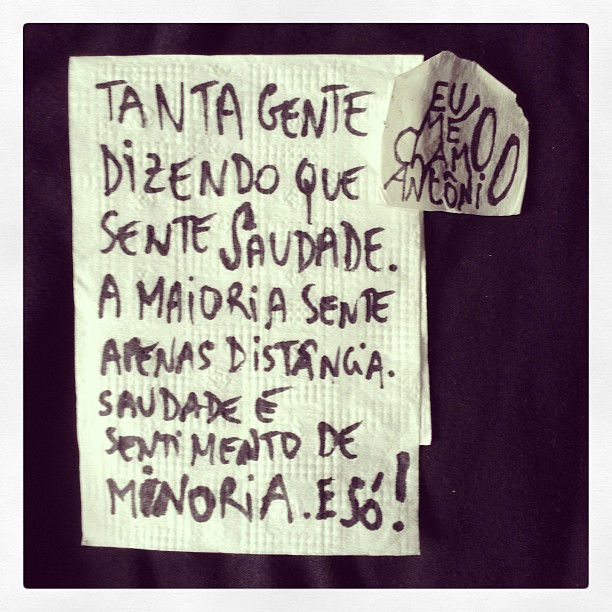 TANTA GENTE
DIZENDO QUE
SENTE SAUDADE.
A MAIORIA SENTE
APENAS DISTÂNCIA.
SAUDADE É
SENTIMENTO DE
MINORIA. E SÓ!
EU
ME
CHAMO
ANTÔNIO